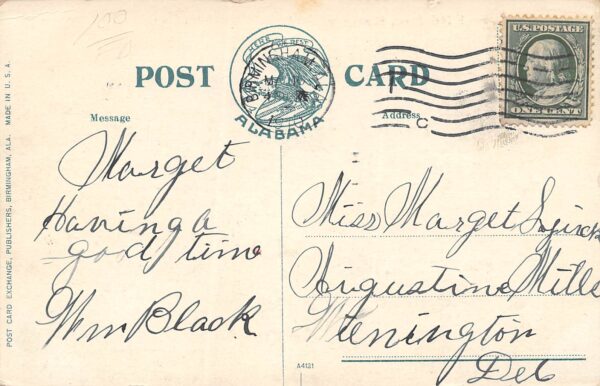 100
POST CARD
HERE WE REST
ALABAMA
BIRMINGHAM, ALA.
U.S. POSTAGE
ONE CENT
C
Message
Address
Marget
Having a
good time
Wm Black
Miss Marget
Augustine Mills
Wienington
Del
A4131
POST CARD EXCHANGE, PUBLISHERS, BIRMINGHAM, ALA. MADE IN U.S.A.